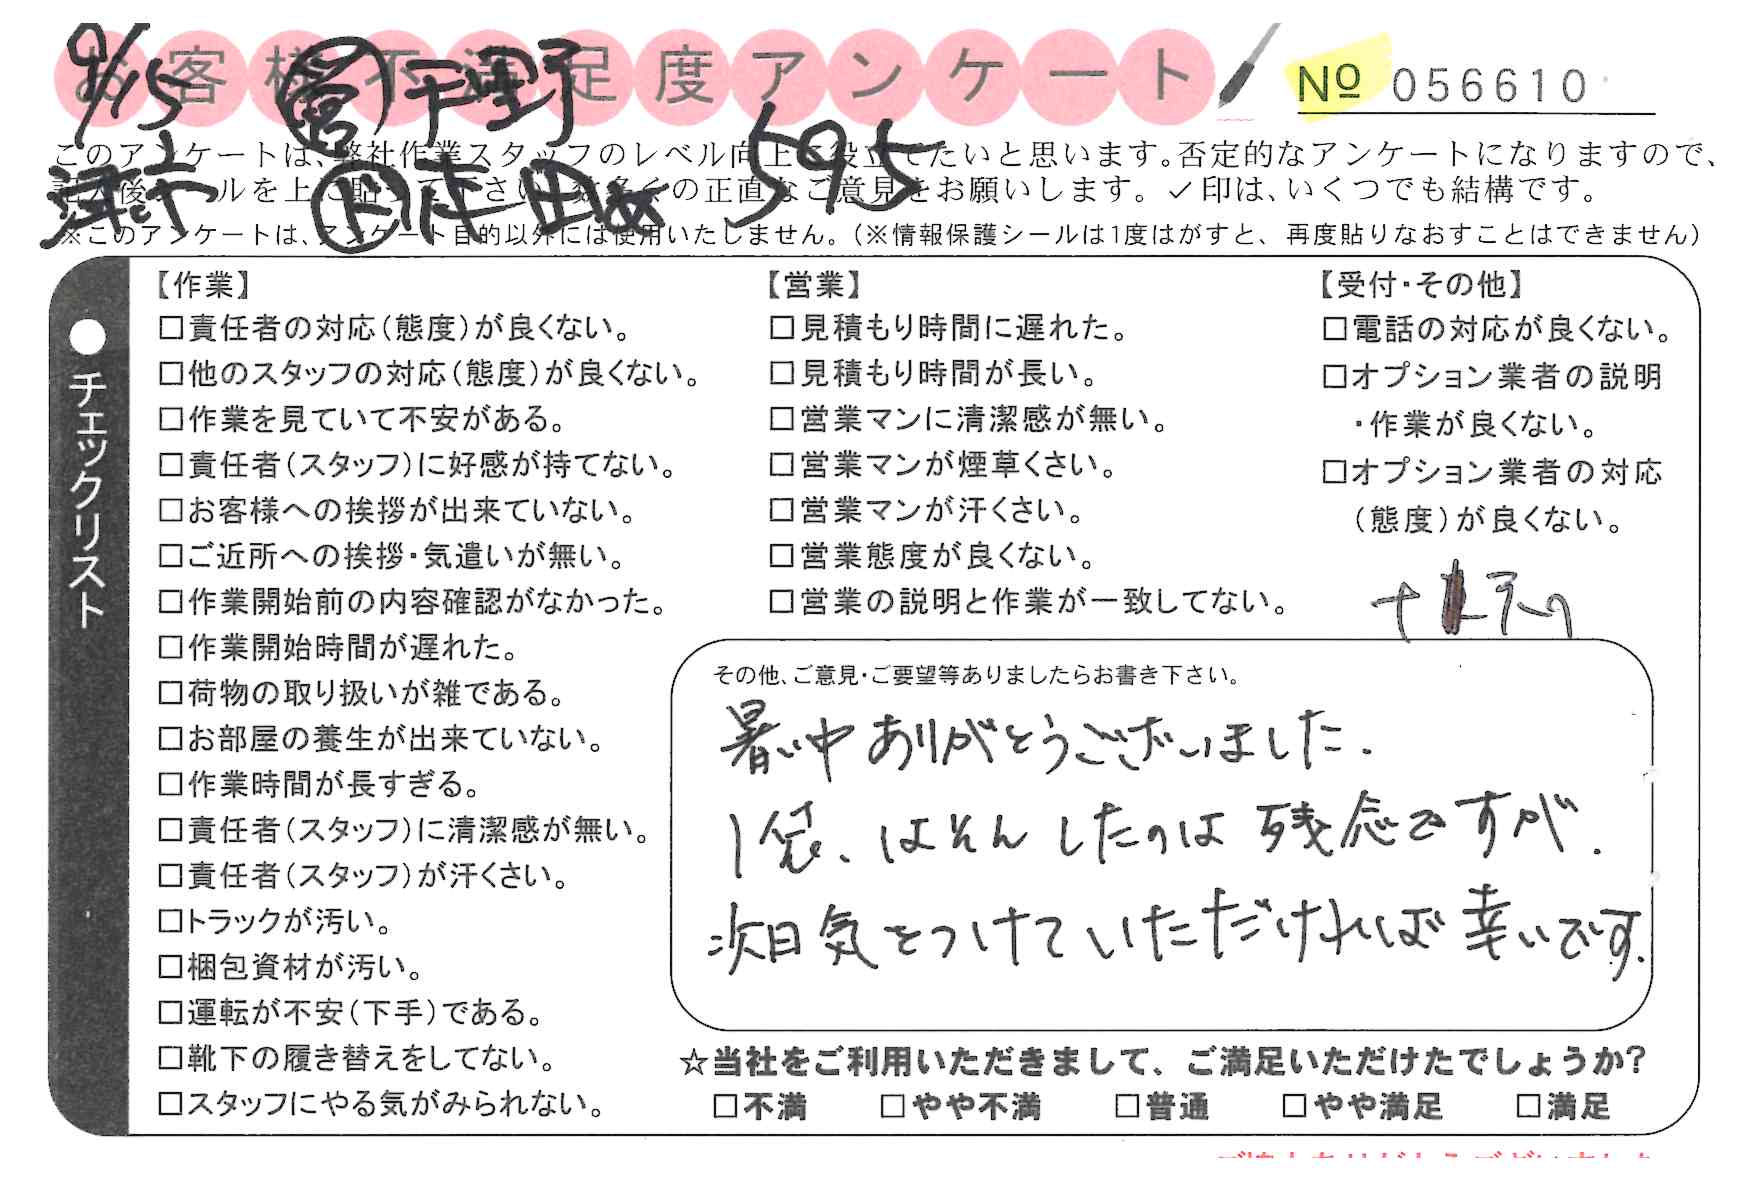 お客様不満足度アンケート
№ 056610
9/15 営 平野
595
このアンケートは、弊社作業スタッフのレベル向上に役立てたいと思います。否定的なアンケートになりますので、
記入後シールを上に貼って下さい。数多くの正直なご意見をお願いします。✓印は、いくつでも結構です。
※このアンケートは、アンケート目的以外には使用いたしません。(※情報保護シールは1度はがすと、再度貼りなおすことはできません)
●チェックリスト
【作業】
□責任者の対応(態度)が良くない。
□他のスタッフの対応(態度)が良くない。
□作業を見ていて不安がある。
□責任者(スタッフ)に好感が持てない。
□お客様への挨拶が出来ていない。
□ご近所への挨拶・気遣いが無い。
□作業開始前の内容確認がなかった。
□作業開始時間が遅れた。
□荷物の取り扱いが雑である。
□お部屋の養生が出来ていない。
□作業時間が長すぎる。
□責任者(スタッフ)に清潔感が無い。
□責任者(スタッフ)が汗くさい。
□トラックが汚い。
□梱包資材が汚い。
□運転が不安(下手)である。
□靴下の履き替えをしてない。
□スタッフにやる気がみられない。
【営業】
□見積もり時間に遅れた。
□見積もり時間が長い。
□営業マンに清潔感が無い。
□営業マンが煙草くさい。
□営業マンが汗くさい。
□営業態度が良くない。
□営業の説明と作業が一致してない。
【受付・その他】
□電話の対応が良くない。
□オプション業者の説明
・作業が良くない。
□オプション業者の対応
(態度)が良くない。
その他、ご意見・ご要望等ありましたらお書き下さい。
暑い中ありがとうございました.
1袋、はそんしたのは残念ですが.
次回気をつけていただければ幸いです.
☆当社をご利用いただきまして、ご満足いただけたでしょうか?
□不満 □やや不満 □普通 □やや満足 □満足